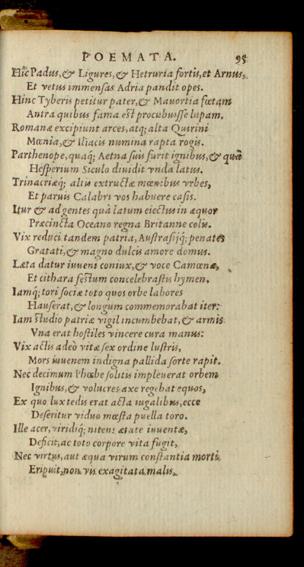 POEMATA. 95
Hîc Padus, & Ligures, & Hetruria fortis, et Arnus,
Et vetus immensas Adria pandit opes.
Hinc Tyberis petitur pater, & Mavortia fœtam
Antra quibus fama est procubuisse lupam.
Romanæ excipiunt arces, atq; alta Quirini
Mœnia, & Iliacis numina rapta rogis.
Parthenope, quaq; Aetna suis furit ignibus, & quâ
Hesperium Siculo diuidit vnda latus.
Trinacriæq; aliis extructæ mœnibus vrbes,
Et paruis Calabri vos habuere casis.
Itur & ad gentes quà latum eiectus in æquor
Præcincta Oceano regna Britanne colis.
Vix reduci tandem patria, Austrasijq; penates
Gratati, & magno dulcis amore domus.
Læta datur iuueni coniux, & voce Camœnæ,
Et cithara festum concelebrastis hymen.
Iamq; tori sociæ toto quos orbe labores
Hauserat, & longum commemorabat iter:
Iam studio patriæ vigil incumbebat, & armis
Vna erat hostiles vincere cura manus:
Vix actis adeò vitæ sex ordine lustris,
Mors iuuenem indigna pallida sorte rapit.
Nec decimum Phœbe solitis impleuerat orbem
Ignibus, & volucres axe regebat equos,
Ex quo lux tedis erat acta iugalibus, ecce
Deseritur viduo mœsta puella toro.
Ille acer, viridiq; nitens ætate iuuentæ,
Deficit, ac toto corpore vita fugit,
Nec virtus, aut æqua virum constantia morti
Eripuit, non vis exagitata malis,